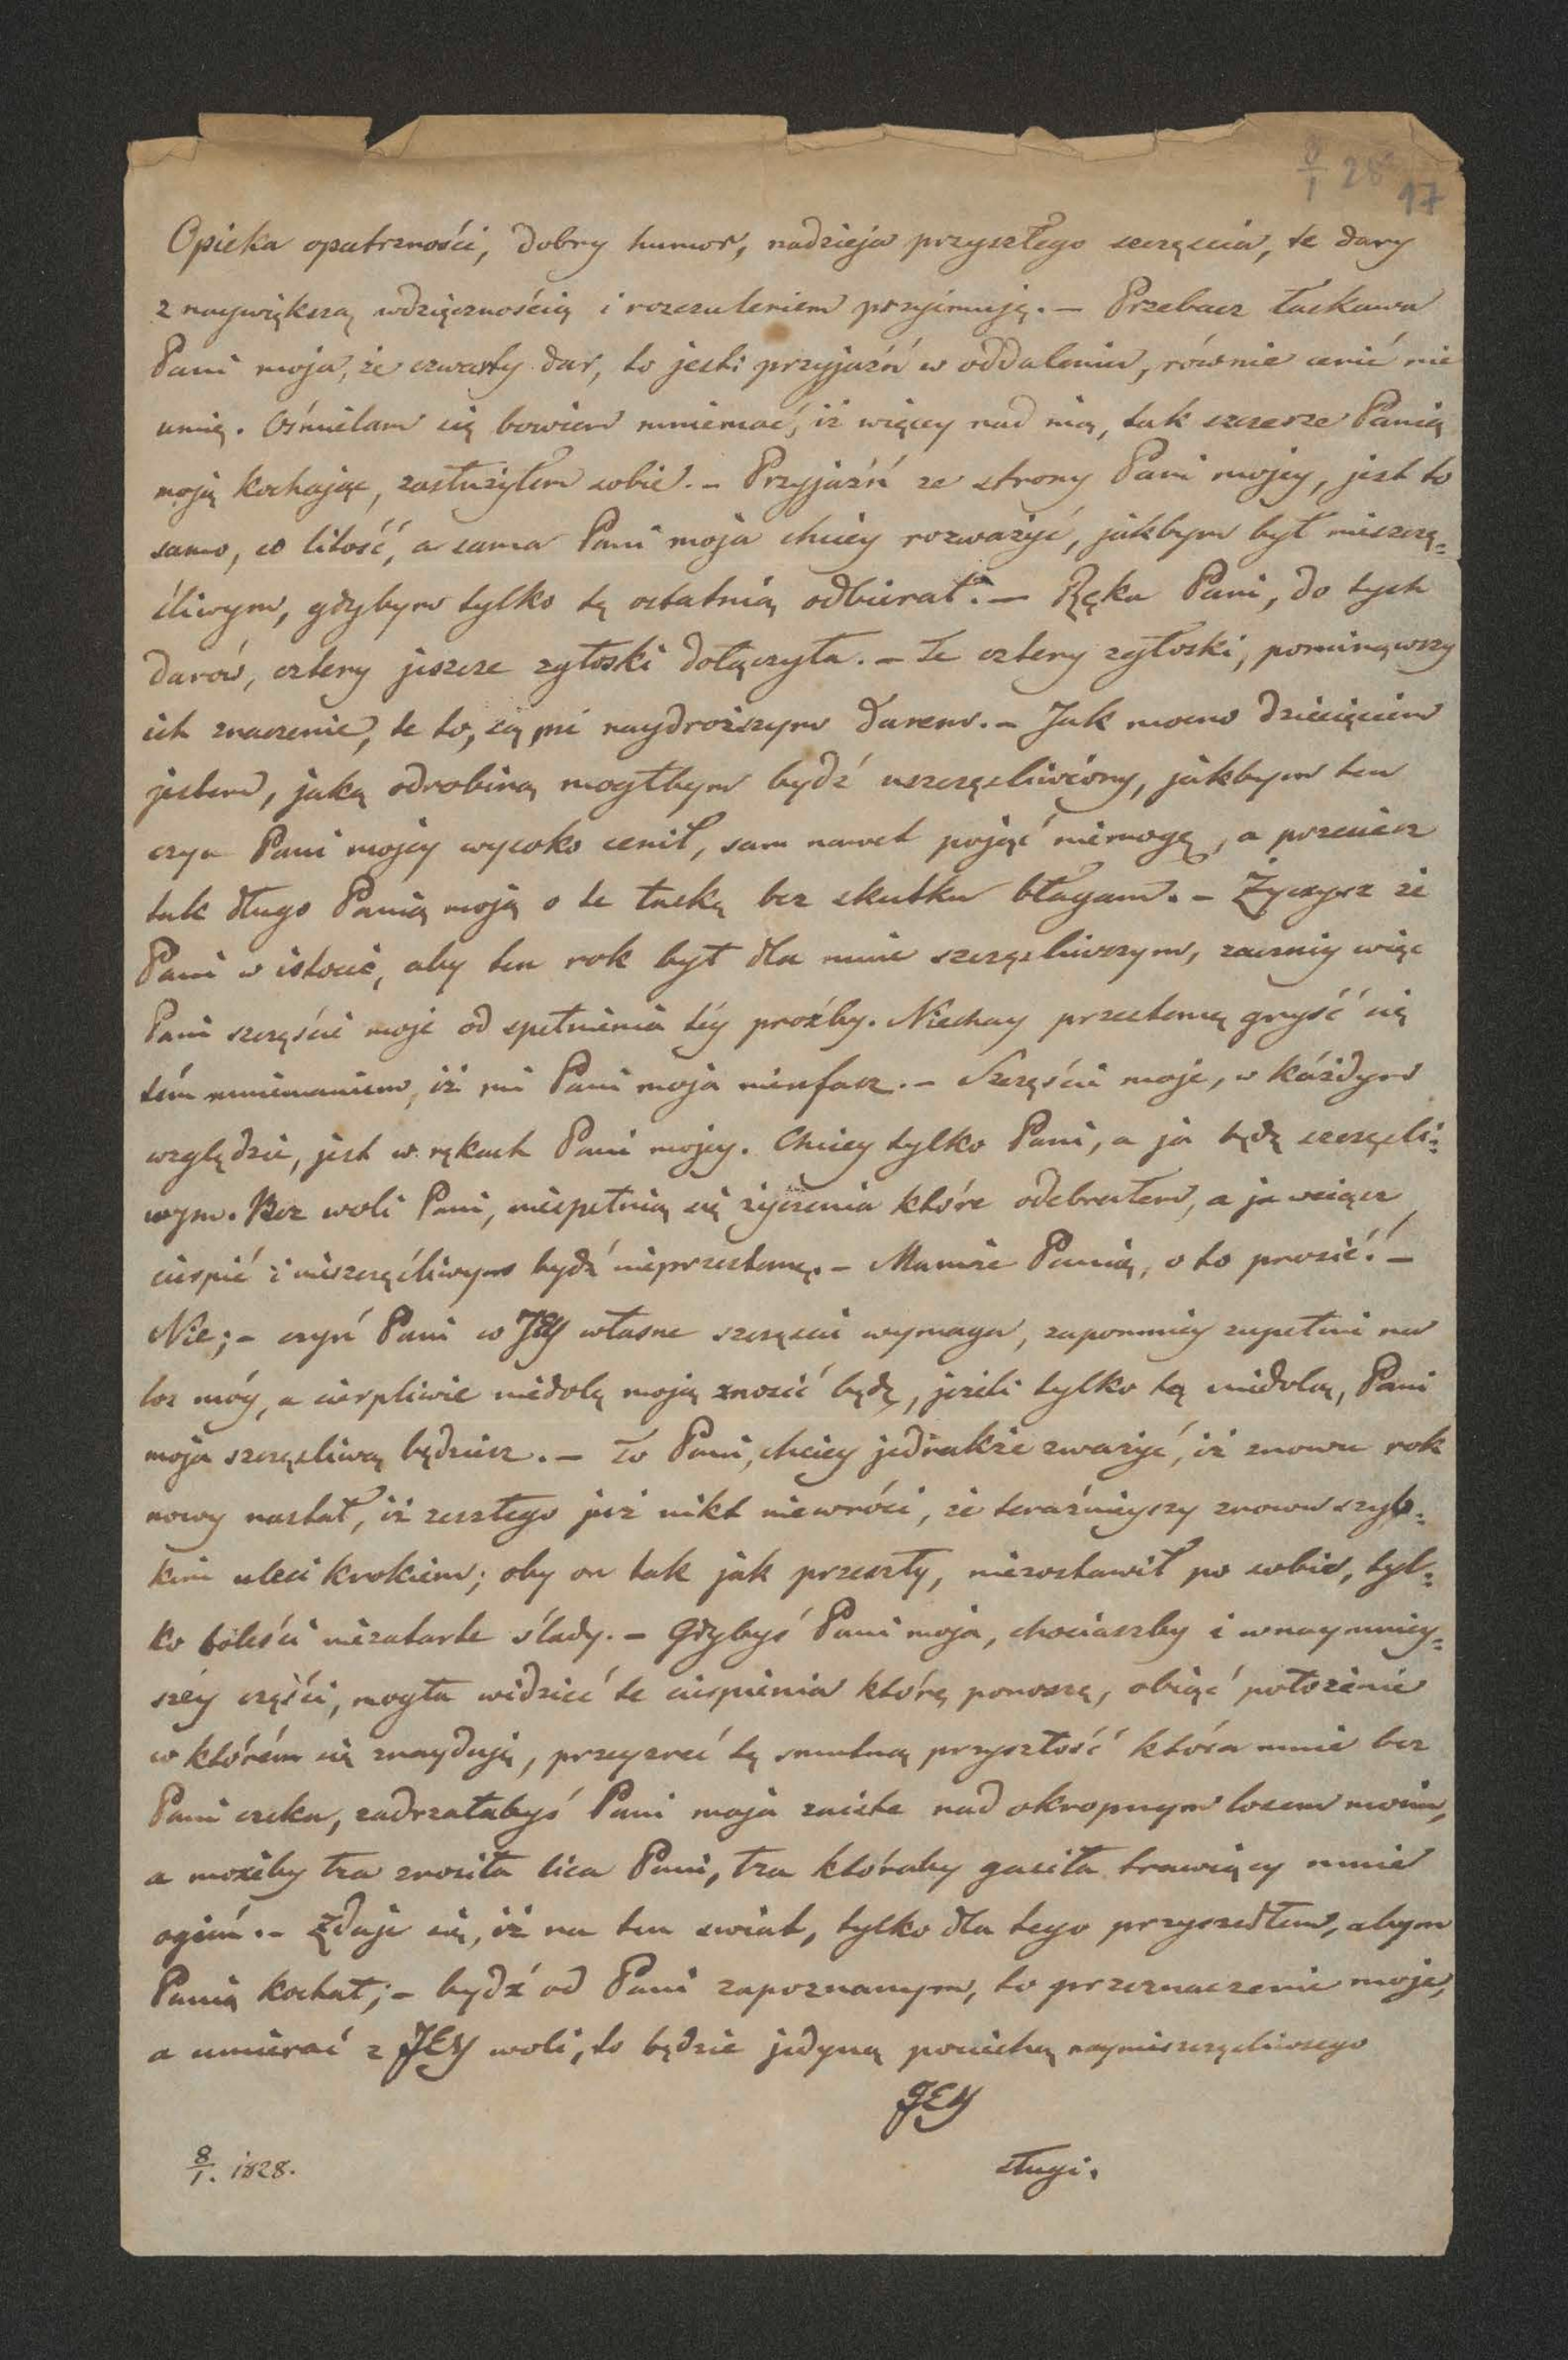 8/1 28
17
Opieka opatrzności, dobry humor, nadzieja przyszłego sczęscia, te dary
z naywiększą wdzięcznością i rozczuleniem przyimuję. — Przebacz łaskawa
Pani moja, że czwarty dar, to jest: przyjaźń w oddaleniu, równie cenić nie
umię. Ośmielam się bowiem mniemać, iż więcey nad nią, tak szczerze Panią
moją kochając, zasłużyłem sobie. — Przyjaźń ze strony Pani mojey, jest to
samo, co litość, a sama Pani moja chciey rozważyć, jakbym był nieszczę=
śliwym, gdybym tylko tę ostatnią odbierał. — Ręka Pani, do tych
darów, cztery jeszcze zgłoski dołączyła. — Te cztery zgłoski, pominąwszy
ich znaczenie, te to, są mi naydroższym darem. — Jak mocno dziecięciem
jestem, jaką odrobiną mogłbym bydź uszczęsliwiony, jakbym ten
czyn Pani mojey wysoko cenił, sam nawet pojąć niemogę, a przecież
tak długo Panią moją o te łaskę bez skutku błagam. — Życzysz że
Pani w istocie, aby ten rok był dla mnie szczęsliwszym, zaczniy więc
Pani szczęście moje od spełnienia téy proźby. Niechay przestanę gryść się
tém mniemaniem, iż mi Pani moja nieufasz. — Szczęście moje, w każdym
względzie, jest w rękach Pani mojey. Chciey tylko Pani, a ja będę szczęsli=
wym. Bez woli Pani, niespełnią się życzenia które odebrałem, a ja wciąż
cierpić i nieszczęśliwym bydź nieprzestanę. — Mamże Panią, o to prosić? —
Nie; — czyń Pani co JEY własne szczęscie wymaga, zapomniy zupełnie na
los móy, a cierpliwie niedolę moją znosić będę, jeżeli tylko tą niedolą, Pani
moja szczęsliwą będziesz. — To Pani, chciey jednakże zważyć, iż znowu rok
nowy nastał, iż zeszłego już nikt niewróci, że teraźnieyszy znowu szyb=
kim uleci krokiem; oby on tak jak przeszły, niezostawił po sobie, tyl=
ko boleści niezatarte ślady. — Gdybyś Pani moja, chociaszby i wnaymniey=
széy części, mogła widzieć te cierpienia którę ponoszę, obiąć położenie
w którém się znayduję, przeyzreć tę smutną przyszłość która mnie bez
Pani czeka, zadrżałabyś Pani moja zaiste nad okropnym losem moim,
a możeby łza zrosiła lica Pani, łza któraby gasiła trawiący mnie
ogień. — Zdaje się, iż na ten swiat, tylko dla tego przyszedłem, abym
Panią kochał; — bydź od Pani zapoznanym, to przeznaczenie moje,
a umierać z JEY woli, to będzie jedyną pociechą naynieszczęsliwszego
JEY
sługi.
8/1. 1828.